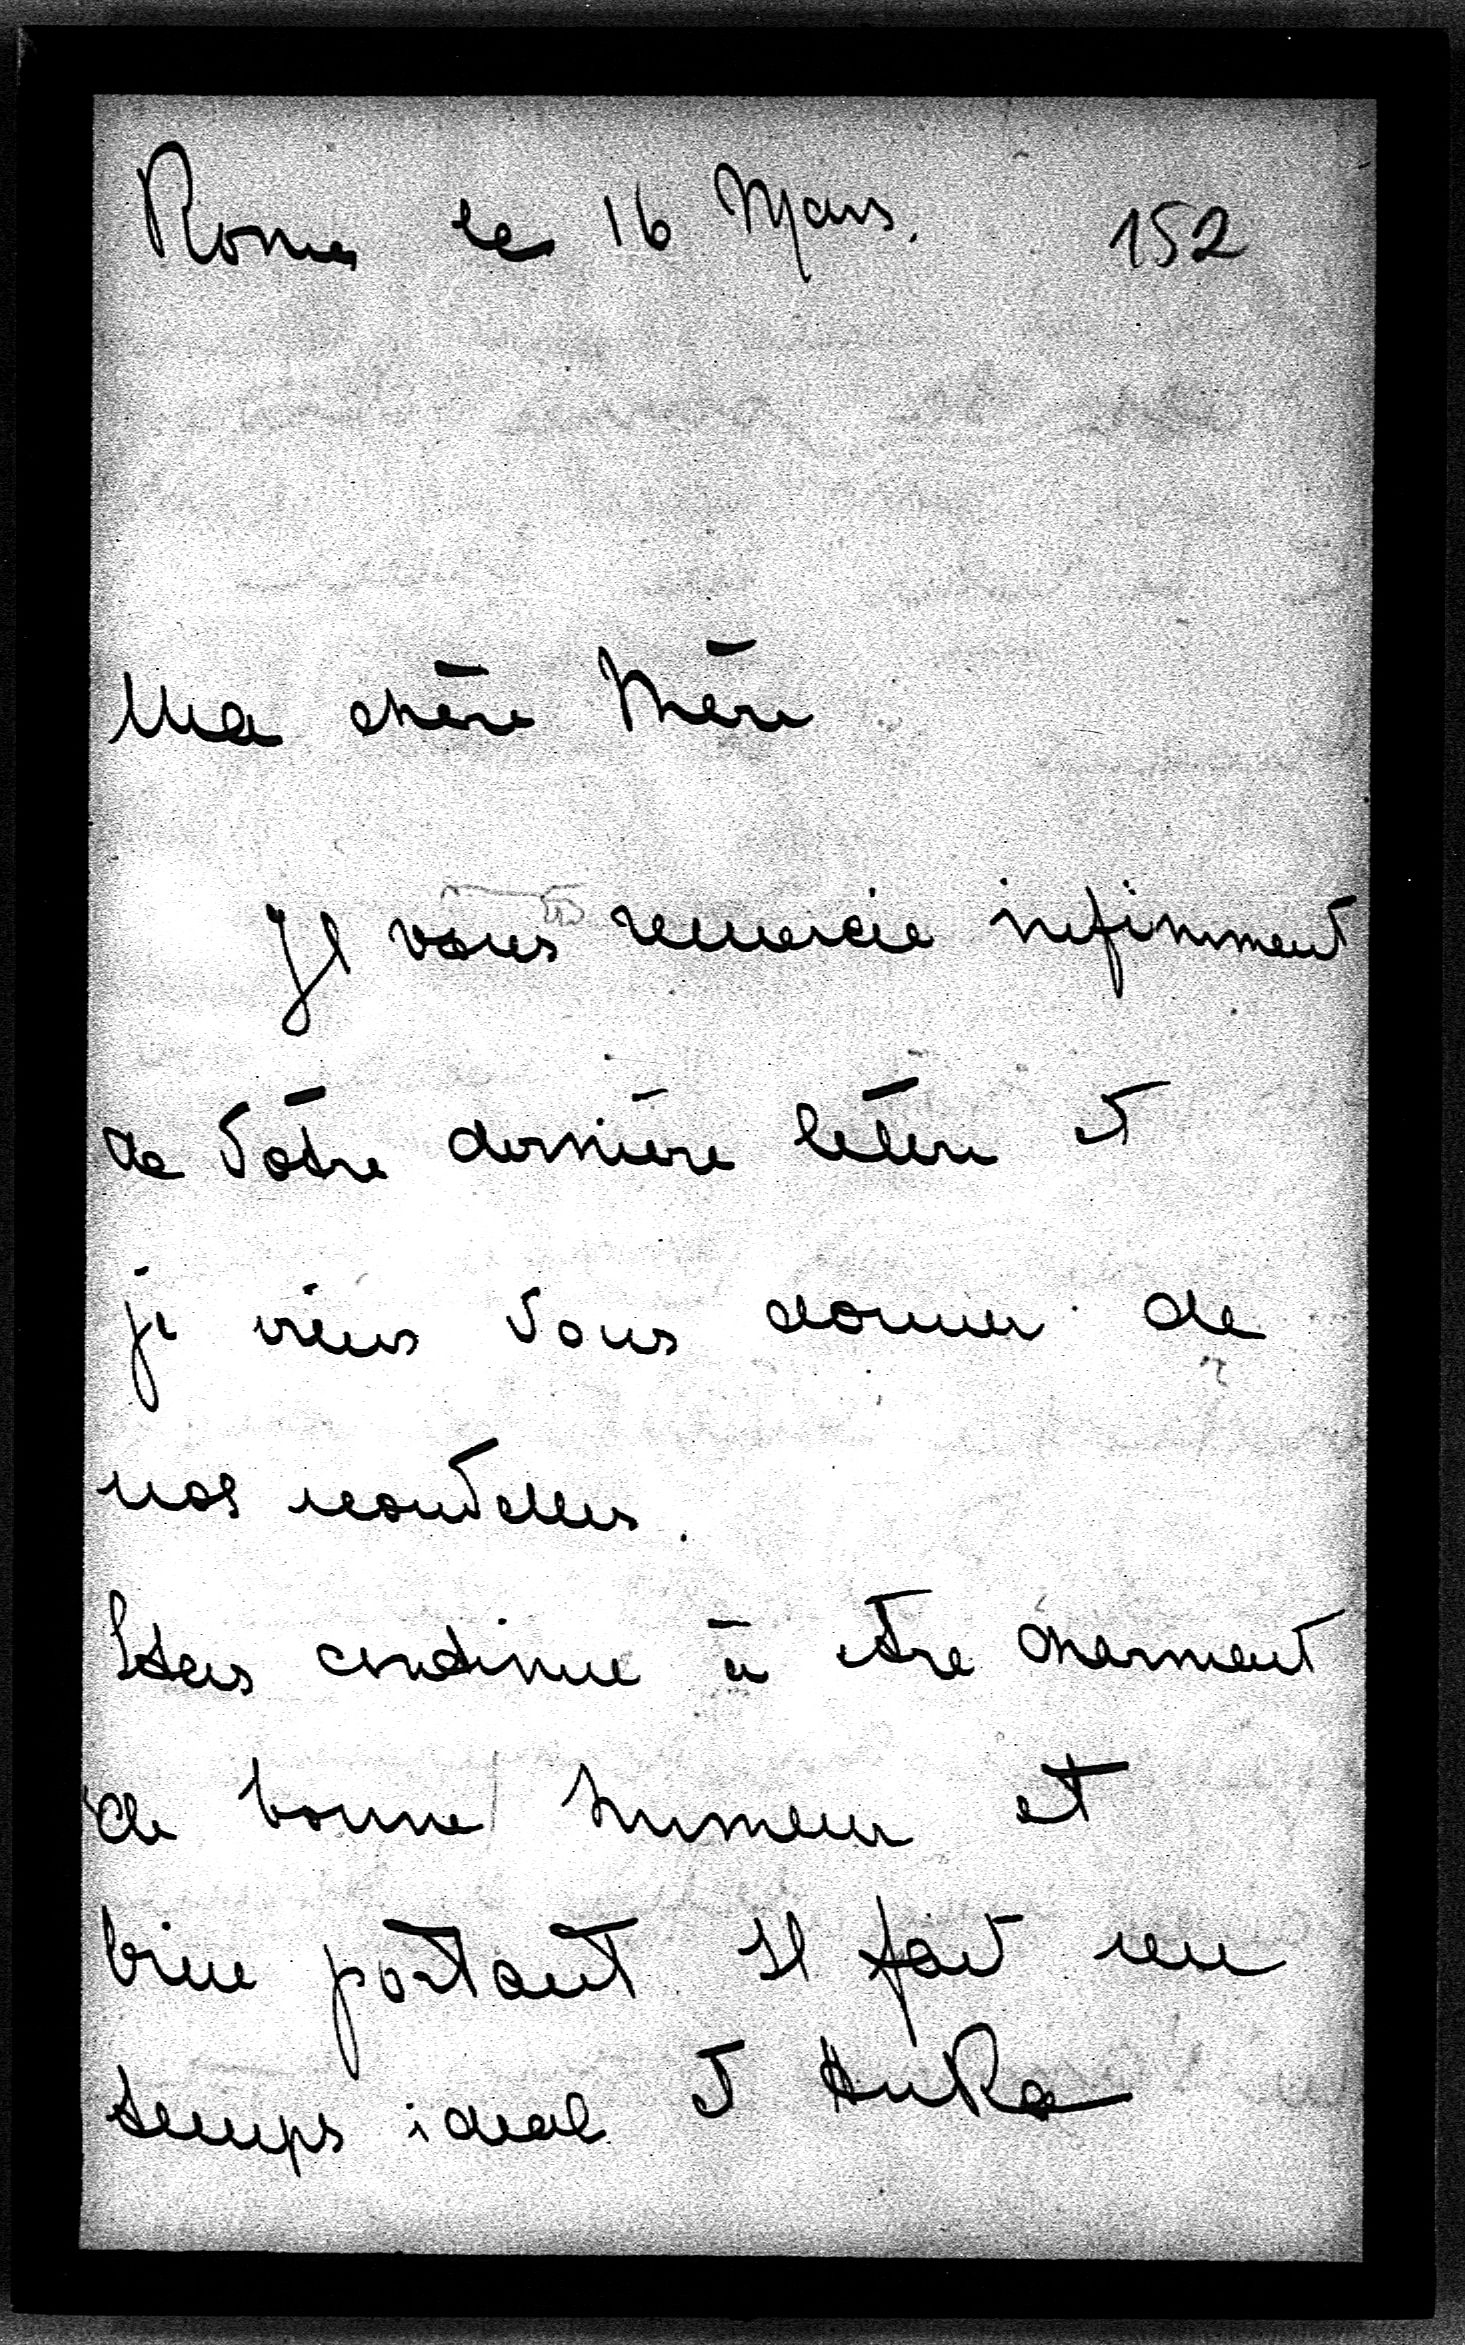 Rome le 16 Mars. 152
Ma chère Mère
Je vous remercie infiniment
de Votre dernière lettre et
je viens Vous donner de
nos nouvelles.
continue à être charmant
de bonne humeur et
bien portant Il fait un
temps ideal et